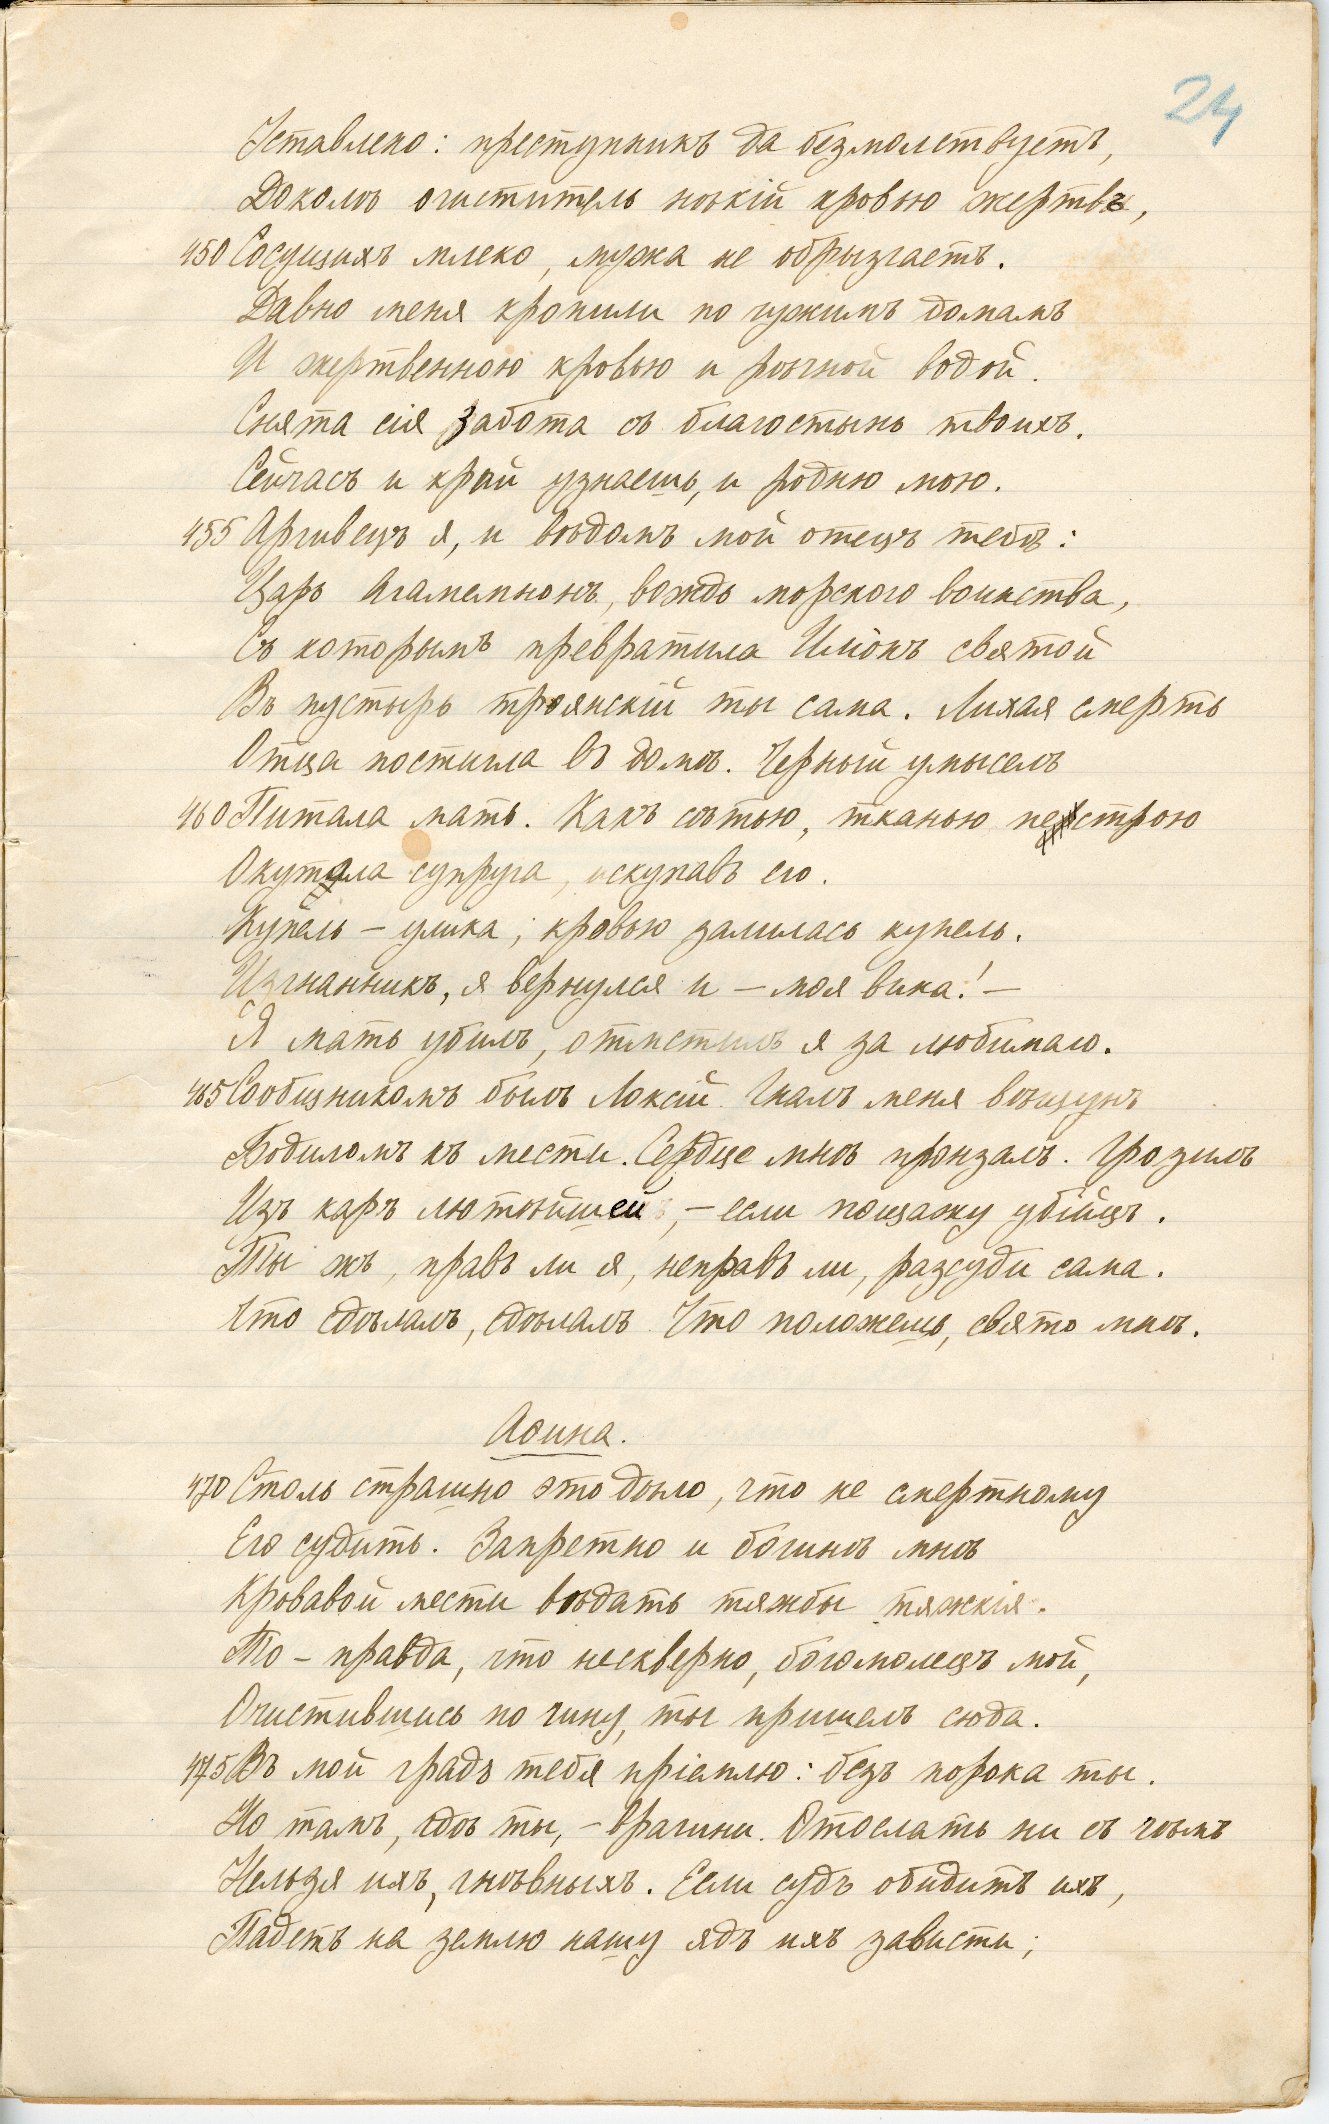 24
Уставлено: преступникъ да безмолствуетъ,
Доколѣ очиститель нѣкій кровью жертвъ,
450 Сосущихъ млеко, мужа не обрызгаетъ.
Давно меня кропили по чужимъ домамъ
И жертвенною кровью и рѣчной водой.
Снята сія забота съ благостынь твоихъ.
Сейчасъ и край узнаешь, и родню мою.
455 Аргивецъ я, и вѣдомъ мой отецъ тебѣ:
Царь Агамемнонъ, вождь морского воинства,
Съ которымъ превратила Иліонъ святой
Въ пустырь троянскій ты сама. Лихая смерть
Отца постигла въ домѣ. Черный умыселъ
460 Питала мать. Какъ сѣтью, тканью пестрою
Окутала супруга, искупавъ его.
Купель – улика; кровью залилась купель.
Изгнанникъ, я вернулся и – моя вина! –
Я мать убилъ, отмстилъ я за любимаго.
465 Сообщникомъ былъ Локсій. Гналъ меня вѣщунъ
Бодиломъ къ мести. Сердце мнѣ пронзалъ. Грозилъ
Изъ каръ лютѣйшей, – если пощажу убійцъ.
Ты жъ, правъ ли я, неправъ ли, разсуди сама.
Что сдѣлалъ, сдѣлалъ. Что положешь, свято мнѣ.
Аѳина.
470 Столь страшно это дѣло, что не смертному
Его судить. Запретно и богинѣ мнѣ
Кровавой мести вѣдать тяжбы тяжкія.
То – правда, что нескверно, богомолецъ мой,
Очистившись по чину, ты пришелъ сюда.
475 Въ мой градъ тебя пріемлю: безъ порока ты.
Но тамъ, гдѣ ты, – врагини. Отослать ни съ чѣмъ
Нельзя ихъ, гнѣвныхъ. Если судъ обидитъ ихъ,
Падетъ на землю нашу ядъ ихъ зависти;